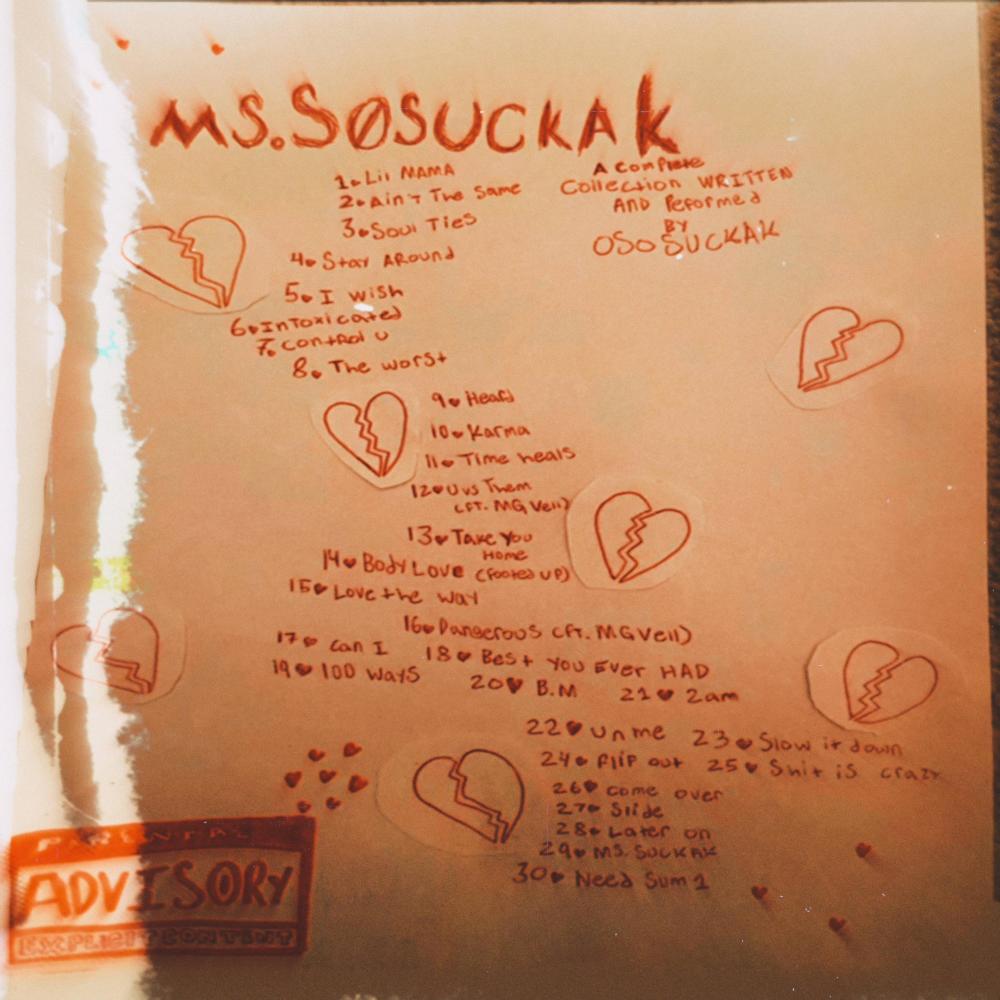 MS.SØSUCKAK
A Complete
Collection WRITTEN
AND Peformed
BY
OSO SUCKAK
1. Lil MAMA
2. Ain't The Same
3. Soul Ties
4. Stay AROUND
5. I wish
6. Intoxicated
7. control u
8. The worst
9. Head
10. Karma
11. Time heals
12. U vs Them
(FT. MG Veli)
13. Take You
Home
14. Body Love (Footed UP)
15. Love the way
16. Dangerous (ft. MG Veli)
17. Can I
18. Best You Ever HAD
19. 100 Ways
20. B.M
21. 2am
22. Un me
23. Slow it down
24. Flip out
25. Shit is crazy
26. come over
27. Slide
28. Later on
29. MS. SUCKAK
30. Need Sum 1
PARENTAL
ADVISORY
EXPLICIT CONTENT